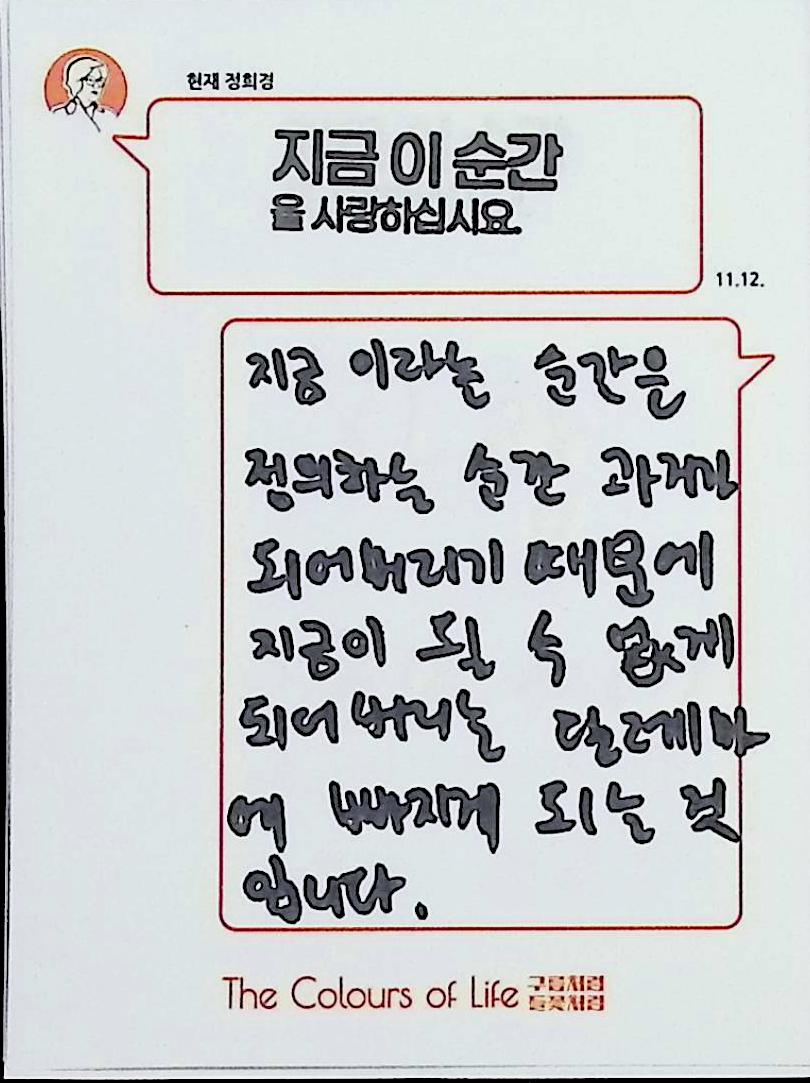 현재 정희경
지금 이 순간
을 사랑하십시요.
11.12.
지금 이라는 순간은
정의하는 순간 과거가
되어버리기 때문에
지금이 될 수 없게
되어버리는 딜레마
에 빠지게 되는 것
입니다.
The Colours of Life 구름처럼
들꽃처럼